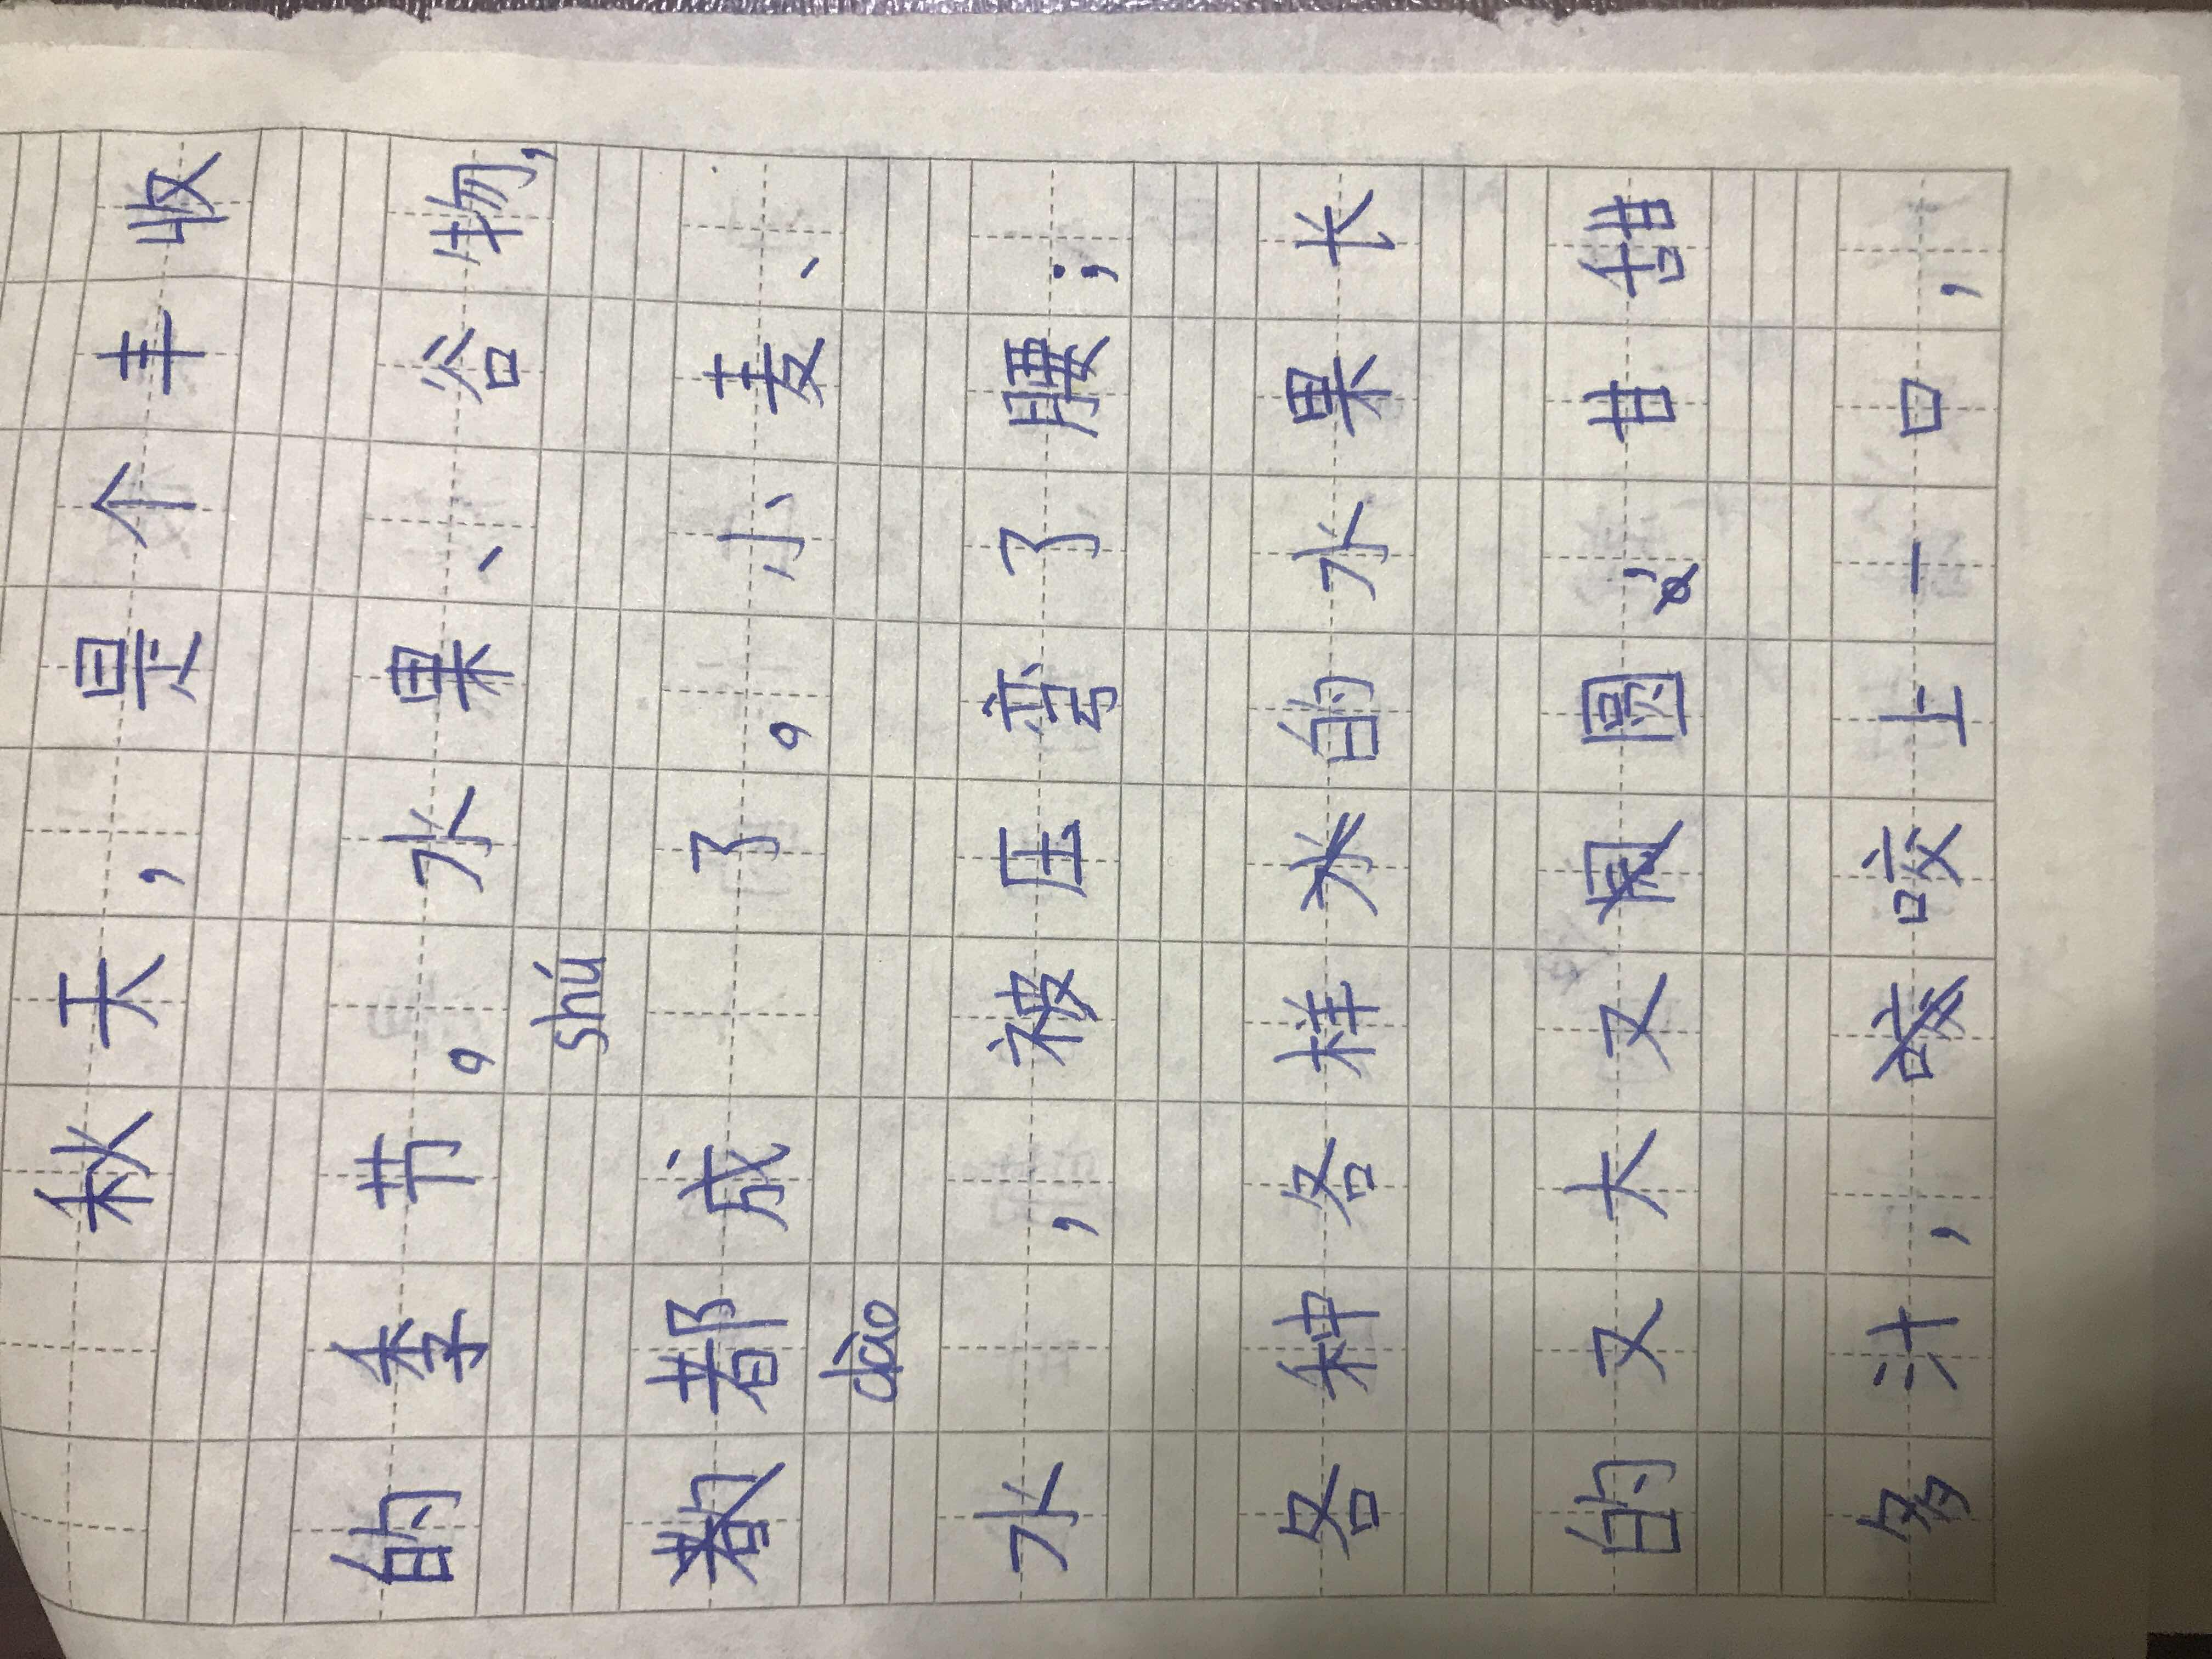 秋天，是个丰收
的季节。水果、谷物，
shú
都成 了。小麦、
dào
水 ，被压弯了腰；
各种各样的水果长
的又大又圆，甘甜
多汁，咬上一口，